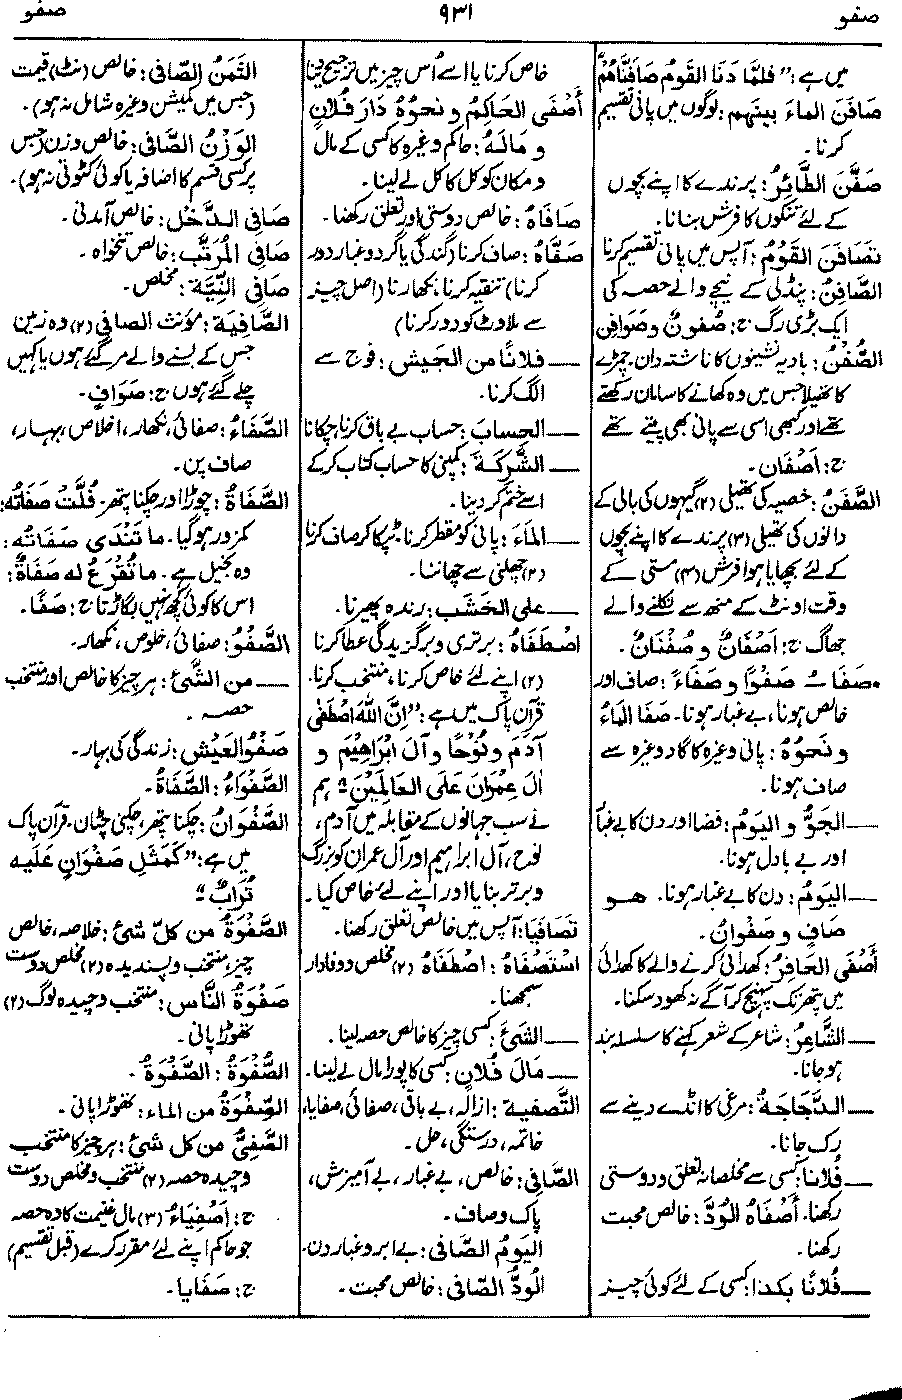 صفو
۹۳۱
صفو
میں ہے: "فلمّا دَنَا القَومُ صَافَنَّاهُمْ
صَافَنَ الماءَ بينَهم: لوگوں میں پانی تقسیم
کرنا۔
صَفَّنَ الطَّائِرُ: پرندے کا اپنے بچوں
کے لئے تنکوں کا فرش بنانا۔
تَصَافَنَ القَوْمُ: آپس میں پانی تقسیم کرنا
الصَّافِنُ: پنڈلی کے نیچے والے حصہ کی
ایک بڑی رگ ج: صُفُونٌ وصَوَافِن
الصُّفْنُ: بادیہ نشینوں کا ناشتہ دان، چمڑے
کا تھیلا جس میں وہ کھانے کا سامان رکھتے
تھے اور کبھی اسی سے پانی بھی پیتے تھے
ج: أَصْفَان۔
الصَّفَنُ: خصیہ کی تھیلی (۲) گیہوں کی بالی کے
دانوں کی تھیلی (۳) پرندے کا اپنے بچوں
کے لئے بچھایا ہوا فرش (۴) مستی کے
وقت اونٹ کے منھ سے نکلنے والے
جھاگ ج: أَصْفَانٌ و صُفْنَانٌ۔
•صَفَا ـُ صَفْوًا و صَفَاءً: صاف اور
خالص ہونا، بے غبار ہونا۔ صَفَا المَاءُ
و نَحوُهُ: پانی وغیرہ کا گاد وغیرہ سے
صاف ہونا۔
—الجَوُّ و اليَومُ: فضا اور دن کا بے غبار
اور بے بادل ہونا۔
—اليَومُ: دن کا بے غبار ہونا۔ هـو
صَافٍ و صَفْوانُ۔
أَصْفَى الحَافِرُ: کھدائی کرنے والے کا کھدائی
میں پتھر تک پہنچ کر آگے نہ کھود سکنا۔
—الشَّاعِرُ: شاعر کے شعر کہنے کا سلسلہ بند
ہو جانا۔
—الدَّجَاجَةُ: مرغی کا انڈے دینے سے
رک جانا۔
—فُلانًا: کسی سے مخلصانہ تعلق و دوستی
رکھنا۔ أَصْفَاهُ الوُدَّ: خالص محبت
رکھنا۔
—فُلانًا بكذا: کسی کے لئے کوئی چیز
خاص کرنا یا اسے اُس چیز میں ترجیح دینا
أَصْفَى الحَاكِمُ و نَحوُهُ دَارَ فُلانٍ
و مَالَهُ: حاکم وغیرہ کا کسی کے مال
و مکان کو کل کا کل لے لینا۔
صَافَاهُ: خالص دوستی اور تعلق رکھنا۔
صَفَّاهُ: صاف کرنا (گندگی یا گرد و غبار دور
کرنا) تنقیہ کرنا، نکھارنا (اصل چیز
سے ملاوٹ کو دور کرنا)
—فلانًا من الجَیش: فوج سے
الگ کرنا۔
—الحسابَ: حساب بے باق کرنا، چکانا
—الشَّرِكَةَ: کمپنی کا حساب کتاب کر کے
اسے ختم کر دینا۔
—المَاءَ: پانی کو مقطر کرنا، ٹپکا کر صاف کرنا
(۲) چھلنی سے چھاننا۔
—على الخَشَب: رندہ پھیرنا۔
اصْطَفَاهُ: برتری و برگزیدگی عطا کرنا
(۲) اپنے لئے خاص کرنا، منتخب کرنا۔
قرآن پاک میں ہے: "إنَّ اللهَ اصْطَفَى
آدَمَ و نُوْحًا و آلَ ابْرَاهِيْمَ و
الَ عِمْرَانَ عَلَى العَالَمِيْنَ" ہم
نے سب جہانوں کے مقابلہ میں آدم،
نوح، آل ابراہیم اور آل عمران کو بزرگ
و برتر بنایا اور اپنے لئے خاص کیا۔
تَصَافَيَا: آپس میں خالص تعلق رکھنا۔
اسْتَصْفَاهُ: اصْطَفَاهُ (۲) مخلص و وفادار
سمجھنا۔
—الشَّيْءَ: کسی چیز کا خالص حصہ لینا۔
—مَالَ فُلانٍ: کسی کا پورا مال لے لینا۔
التَّصْفِيةُ: ازالہ، بے باقی، صفائی، صفایا،
خاتمہ، درستگی، حل۔
الصَّافِى: خالص، بے غبار، بے آمیزش،
پاک و صاف۔
اليَومُ الصَّافِى: بے ابر و غبار دن۔
الوُدُّ الصَّافِى: خالص محبت۔
الثَّمَنُ الصَّافِى: خالص (نٹ) قیمت
(جس میں کمیشن وغیرہ شامل نہ ہو)۔
الوَزْنُ الصَّافِى: خالص وزن (جس
پر کسی قسم کا اضافہ یا کوئی کٹوتی نہ ہو)۔
صَافِى الدَّخْلِ: خالص آمدنی۔
صَافِى المُرَتَّب: خالص تنخواہ۔
صَافِى النِّيَّةِ: مخلص۔
الصَّافِيَةُ: مؤنث الصافى (۲) وہ زمین
جس کے بسنے والے مر گئے ہوں یا کہیں
چلے گئے ہوں ج: صَوَافٍ۔
الصَّفَاءُ: صفائی، نکھار، اخلاص، بہار،
صاف پن۔
الصَّفَاةُ: چوڑا اور چکنا پتھر۔ فُلَّتْ صَفَاتُه:
کمزور ہو گیا۔ ما تَنْدَى صَفَاتُه:
وہ بخیل ہے۔ ما تُقْرَعُ له صَفَاةٌ:
اس کا کوئی کچھ نہیں بگاڑتا ج: صَفًا۔
الصَّفْوُ: صفائی، خلوص، نکھار۔
—من الشَّئِ: ہر چیز کا خالص اور منتخب
حصہ۔
صَفْوُ العَيْش: زندگی کی بہار۔
الصَّفْوَاءُ: الصَّفَاةُ۔
الصَّفْوَانُ: چکنا پتھر، چکنی چٹان۔ قرآن پاک
میں ہے: "كَمَثَلِ صَفْوَانٍ عَلَيه
تُرَابٌ"
الصَّفْوَةُ من كلّ شئ: خلاصہ، خالص
چیز، منتخب و پسندیدہ (۲) مخلص دوست
صَفْوَةُ النَّاس: منتخب و چیدہ لوگ (۲)
تھوڑا پانی۔
الصُّفْوَةُ: الصَّفْوَةُ۔
الصِّفْوَةُ من الماء: تھوڑا پانی۔
الصَّفِيُّ من كل شئ: ہر چیز کا منتخب
و چیدہ حصہ (۲) منتخب و مخلص دوست
ج: أَصْفِيَاءُ (۳) مال غنیمت کا وہ حصہ
جو حاکم اپنے لئے مقرر کرے (قبل تقسیم)
ج: صَفَايا۔